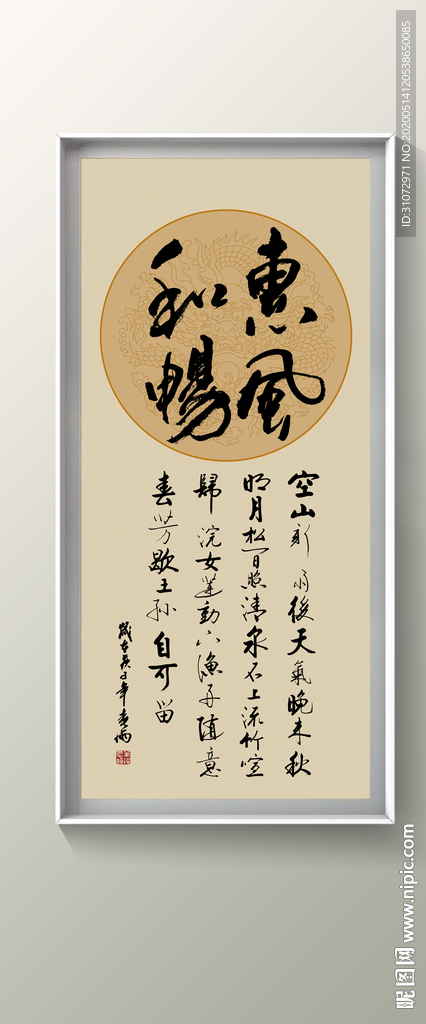 惠風
和暢
空山新雨後天氣晚来秋
明月松间照清泉石上流竹喧
歸浣女莲動下漁舟随意
春芳歇王孙自可留
歲在庚子年
ID:31072971 NO:20200514120538650085
昵图网 www.nipic.com